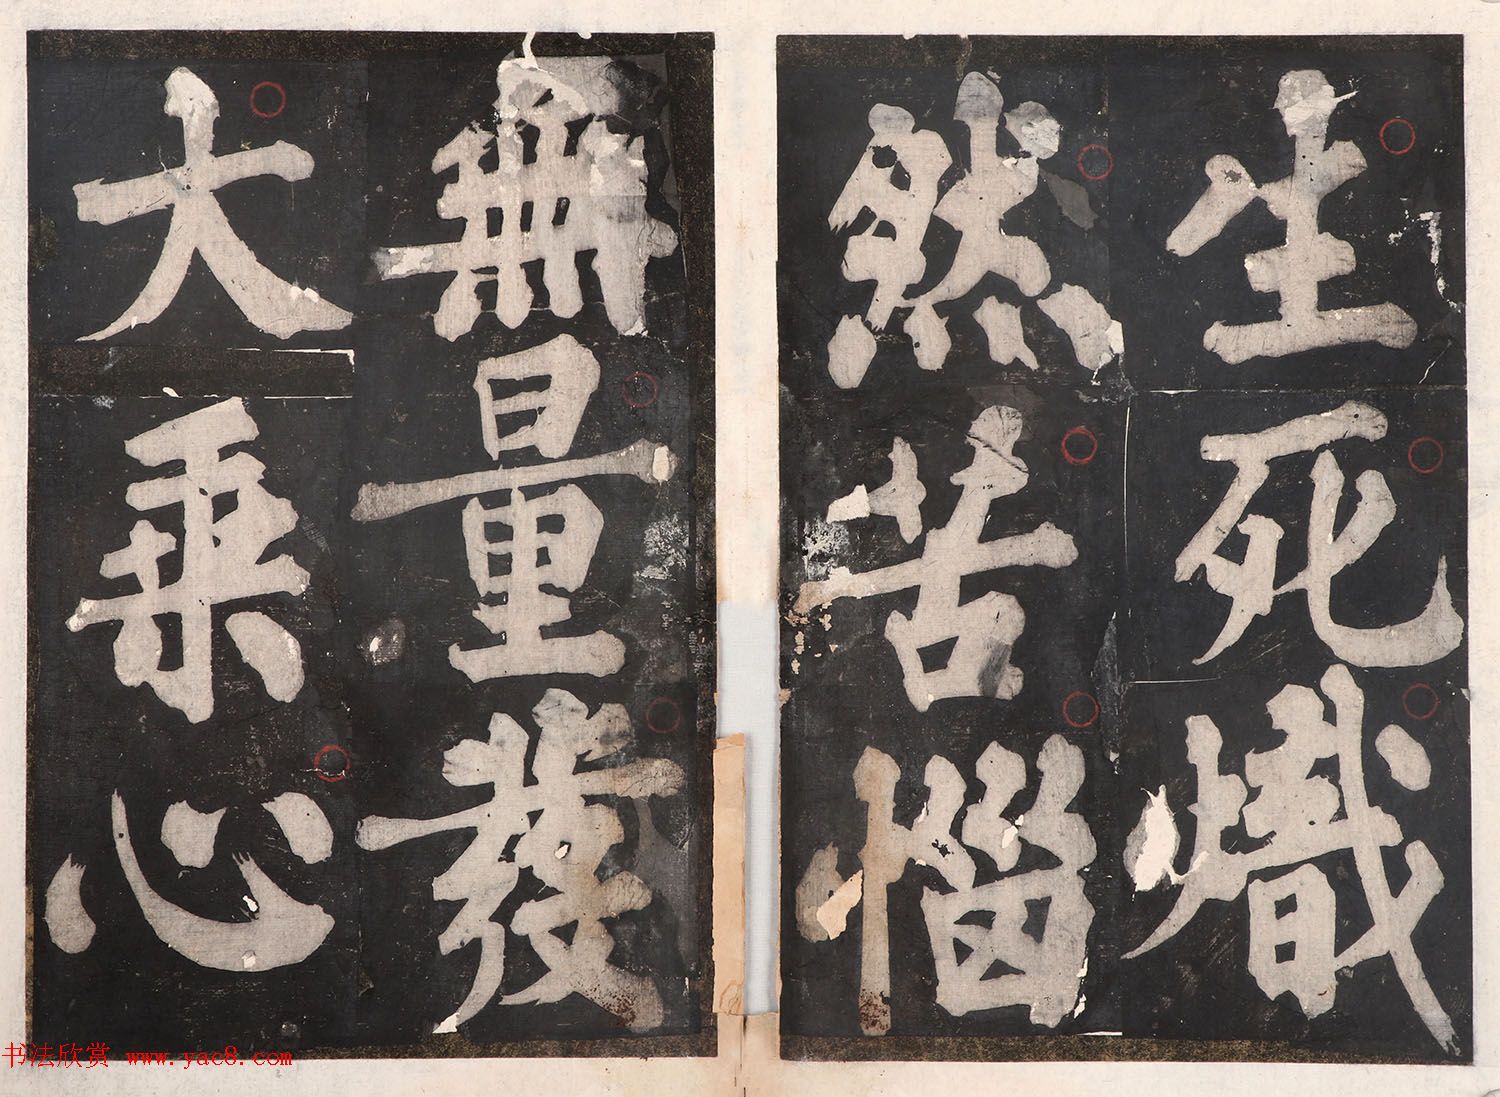 生死熾
然苦惱
無量發
大乘心
书法欣赏 www.yac8.com